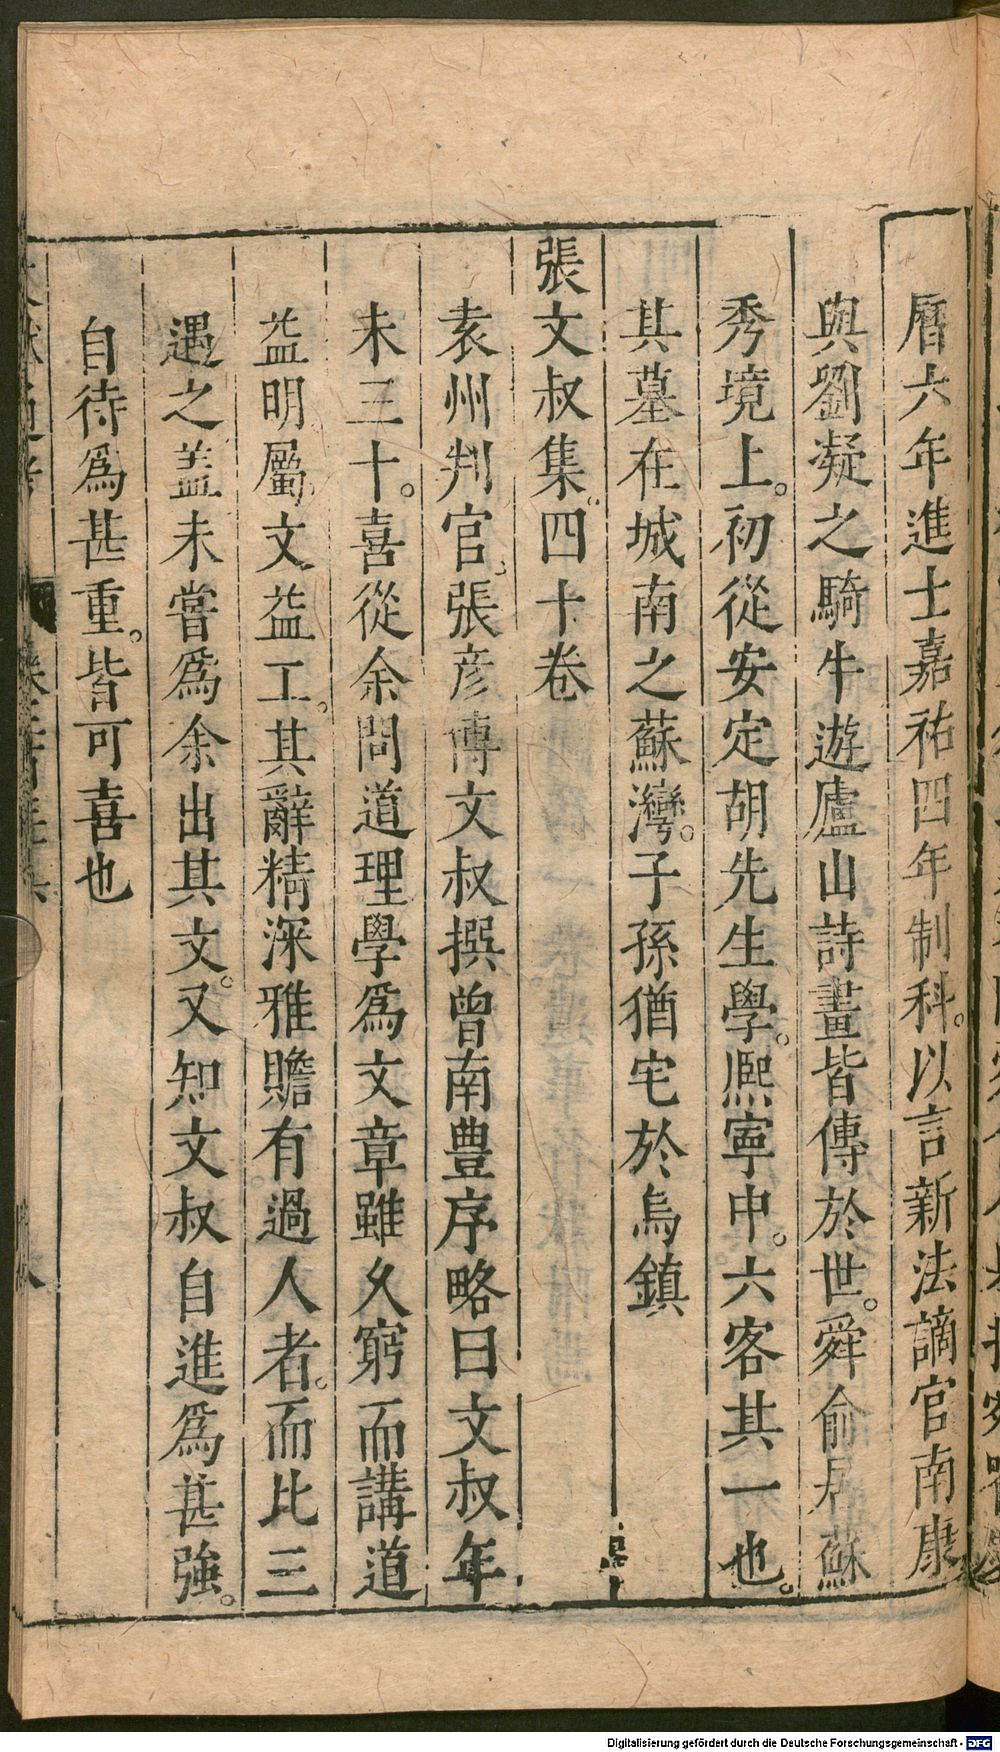 曆六年進士嘉祐四年制科。以言新法謫官南康
與劉凝之騎牛遊廬山詩畫皆傳於世。舜俞居蘇
秀境上。初從安定胡先生學。熙寧中。六客其一也。
其墓在城南之蘇灣。子孫猶宅於烏鎮
張文叔集。四十卷
袁州判官。張彦博文叔撰曾南豊序略曰文叔年
未三十。喜從余問道理學爲文章雖久窮而講道
益明屬文益工。其辭精深雅贍有過人者。而比三
遇之盖未嘗爲余出其文。又知文叔自進爲甚強。
自待爲甚重。皆可喜也
Digitalisierung gefördert durch die Deutsche Forschungsgemeinschaft - DFG